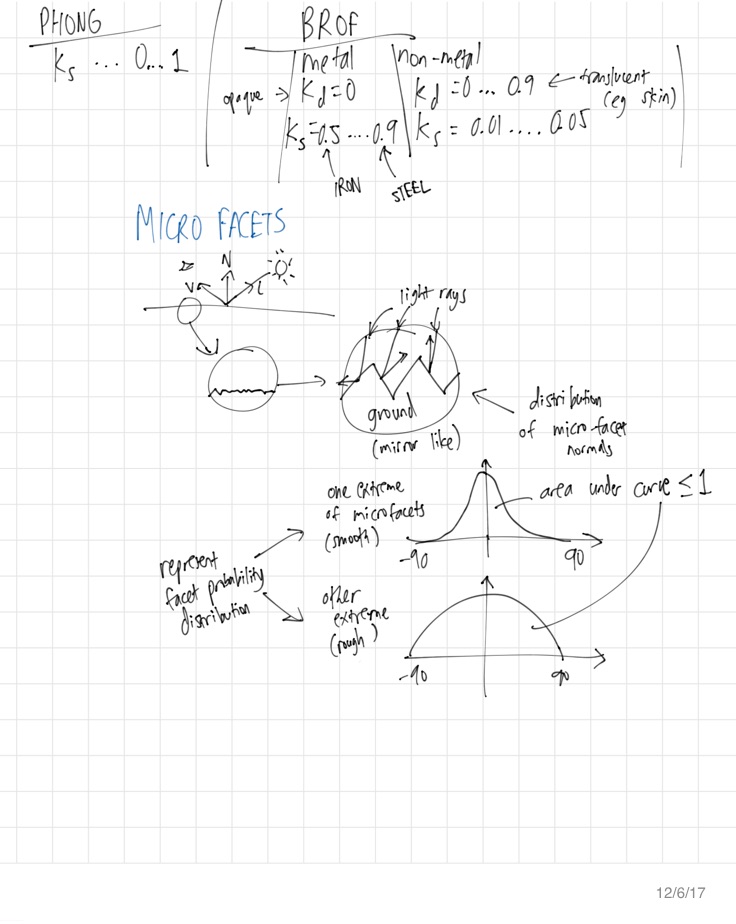 PHONG
Ks ... 0... 1
BRDF
metal
non-metal
opaque → Kd=0
Kd = 0 ... 0.9 ← translucent
(eg skin)
Ks=0.5 ....0.9
Ks = 0.01 .... 0.05
IRON
STEEL
MICRO FACETS
V
N
L
light rays
ground
(mirror like)
distribution
of micro-facet
normals
one extreme
of microfacets
(smooth)
area under curve ≤ 1
-90
90
represent
facet probability
distribution
other
extreme
(rough)
-90
90
12/6/17